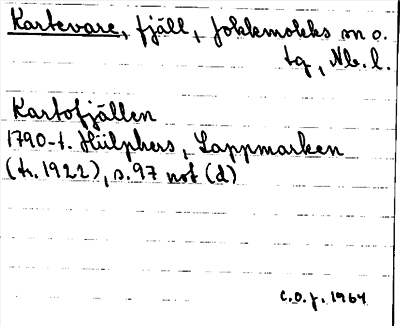 Kartevare, fjäll, Jokkmokks sn o.
tg, Nb. l.
Kartofjällen
1790-t. Hülphers, Lappmarken
(tr. 1922), s. 97 not (d)
C.O.J. 1964